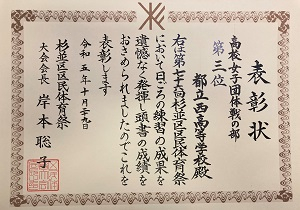 表彰状
高校女子団体戦の部
第三位
都立西高等学校殿
右は第七十六回杉並区区民体育祭
において日ごろの練習の成果を
遺憾なく発揮し頭書の成績を
おさめられましたのでこれを
表彰します
令和五年十月二十九日
杉並区区民体育祭
大会会長 岸本聡子